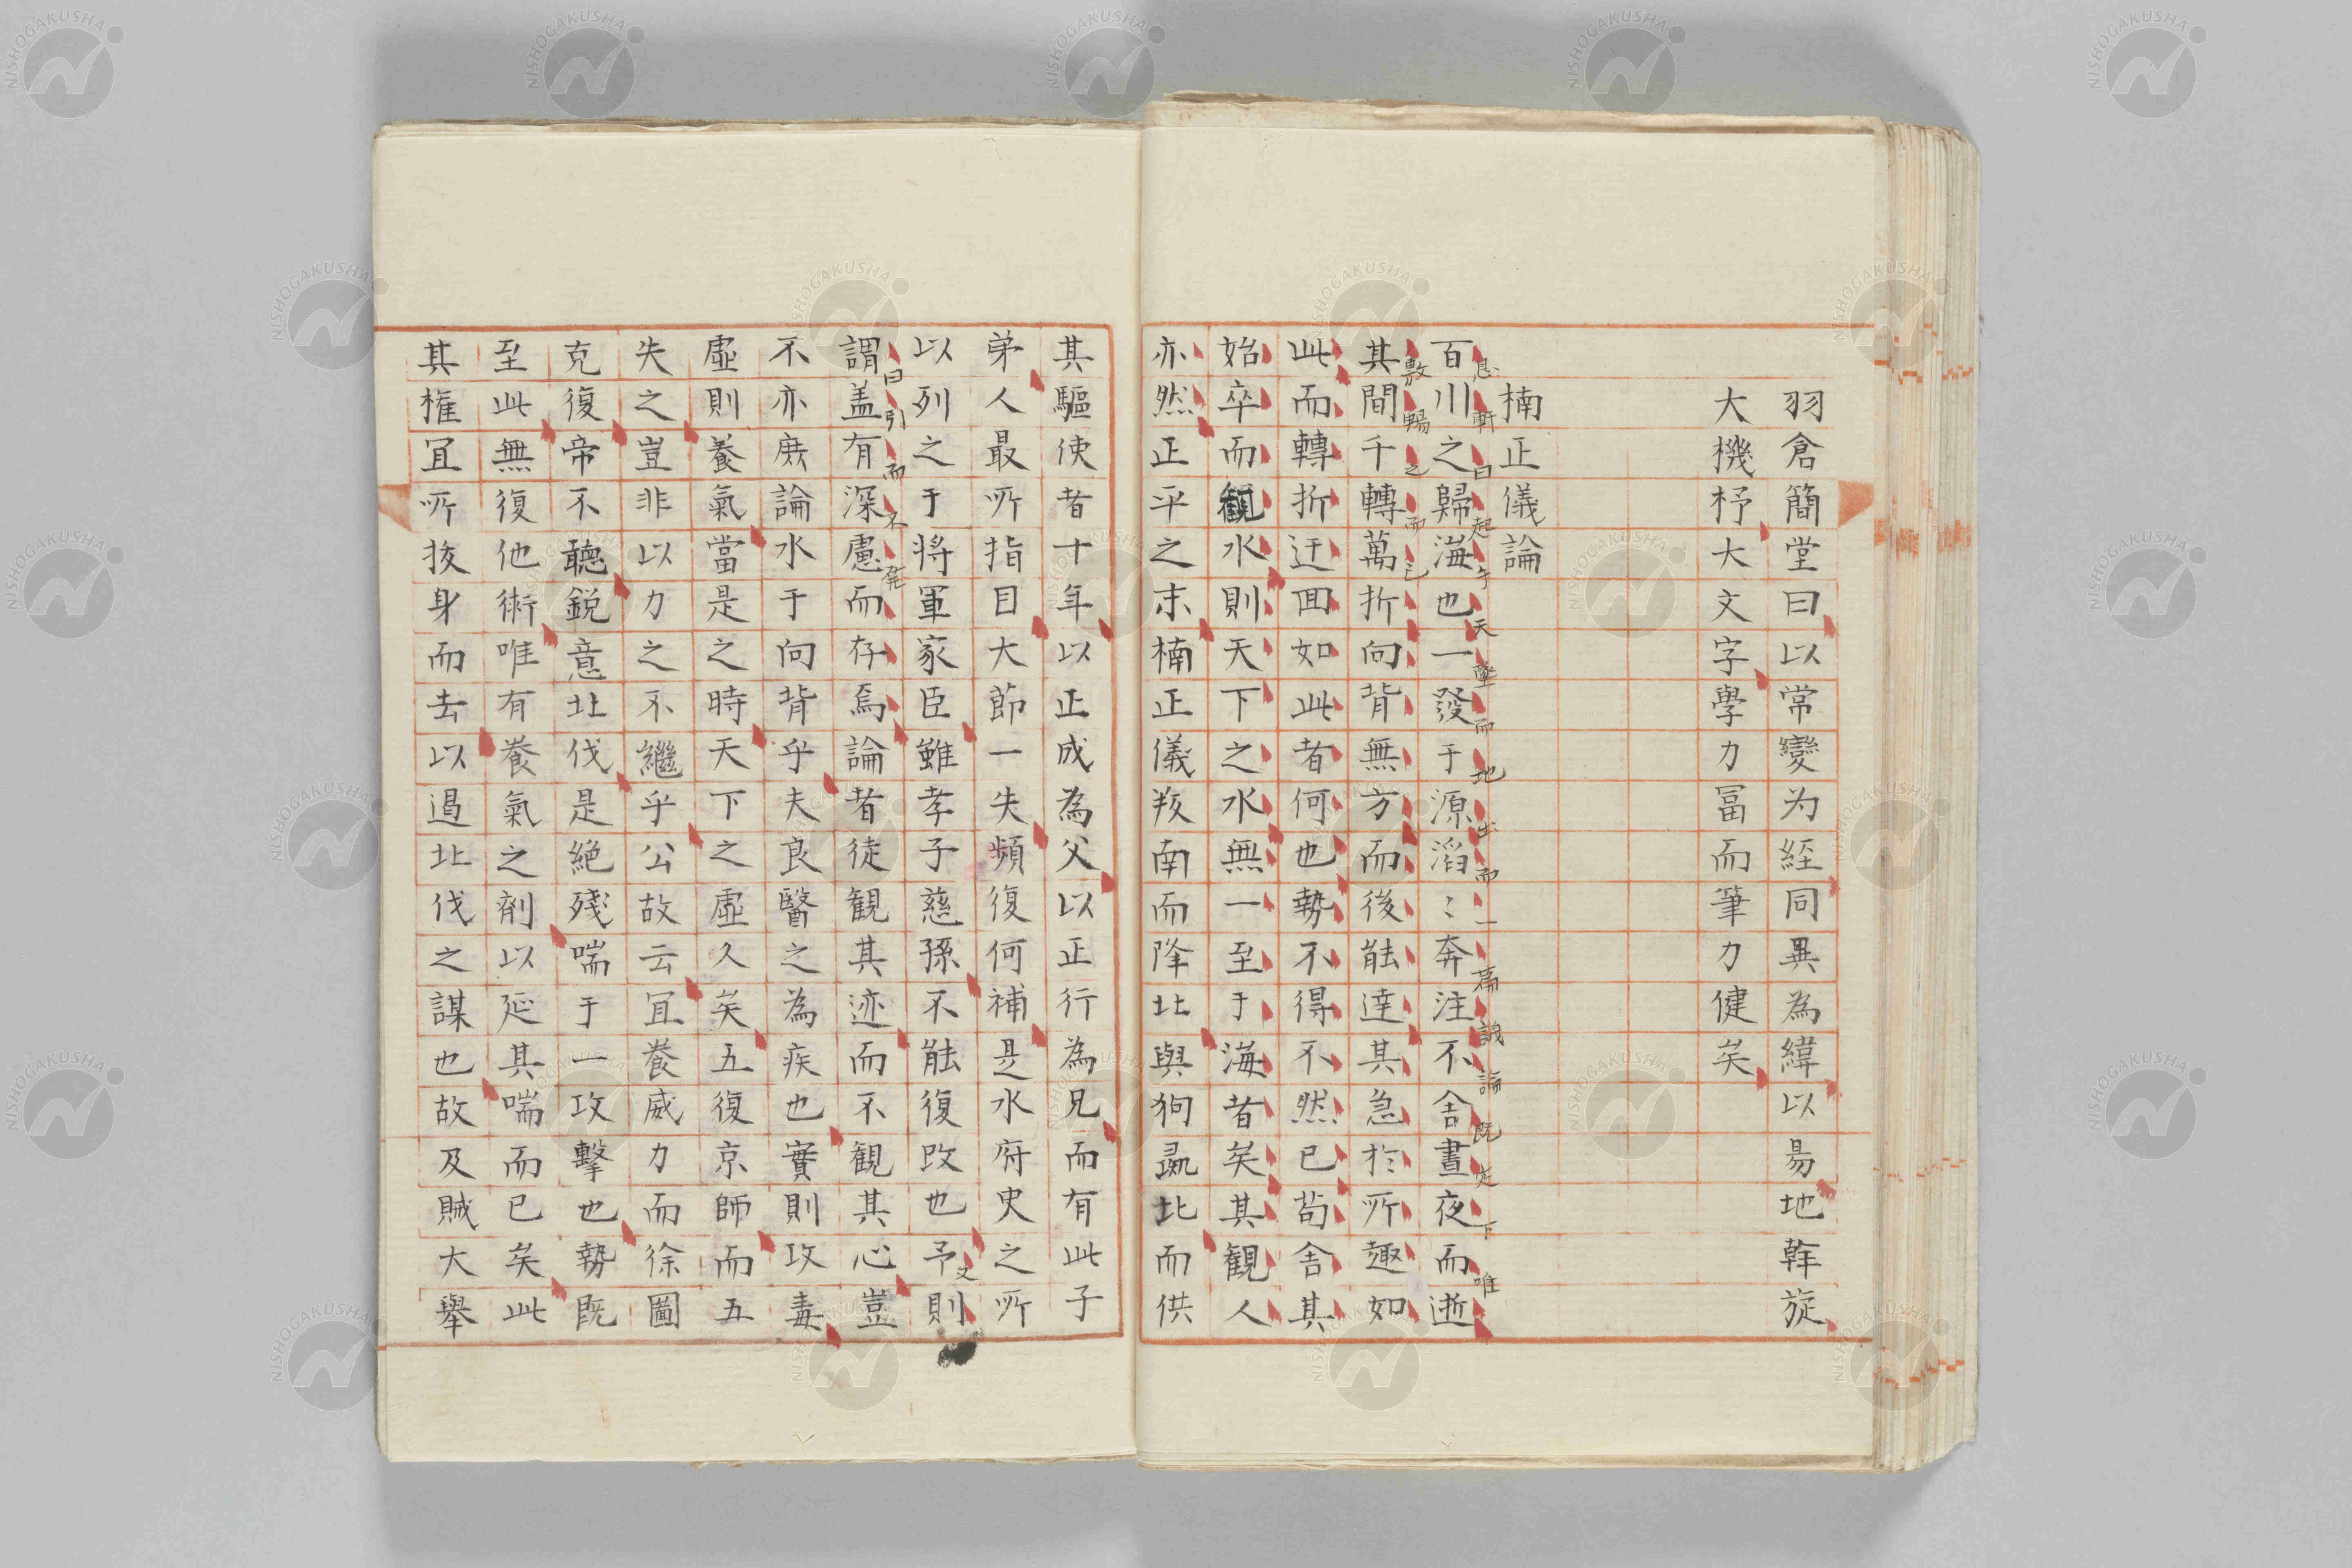 羽倉簡堂曰以常變为経同異為緯以易地斡旋
大機杼大文字學力冨而筆力健矣
楠正儀論
百川之歸海也一發于源滔〻奔注不舍晝夜而逝
息軒曰起乎天墜而地出而一篇議論既定下唯
其間千轉萬折向背無方而後能達其急於所趣如
敷暢之而已
此而轉折迂回如此者何也勢不得不然已苟舍其
始卒而観水則天下之水無一至于海者矣其観人
亦然正平之末楠正儀叛南而降北與狗彘北而供
其驅使者十年以正成為父以正行為兄而有此子
弟人最所指目大節一失頻復何補是水府史之所
以列之于将軍家臣雖孝子慈孫不能復改也予則
又
謂盖有深慮而存焉論者徒観其迹而不観其心豈
曰引而不発
不亦庶論水于向背乎夫良醫之為疾也實則攻毒
虛則養氣當是之時天下之虛久矣五復京師而五
失之豈非以力之不繼乎公故云宜養威力而徐圖
克復帝不聽鋭意北伐是絶残喘于一攻擊也勢既
至此無復他術唯有養氣之剤以延其喘而已矣此
其権宜所抜身而去以遏北伐之謀也故及賊大舉
NISHOGAKUSHA